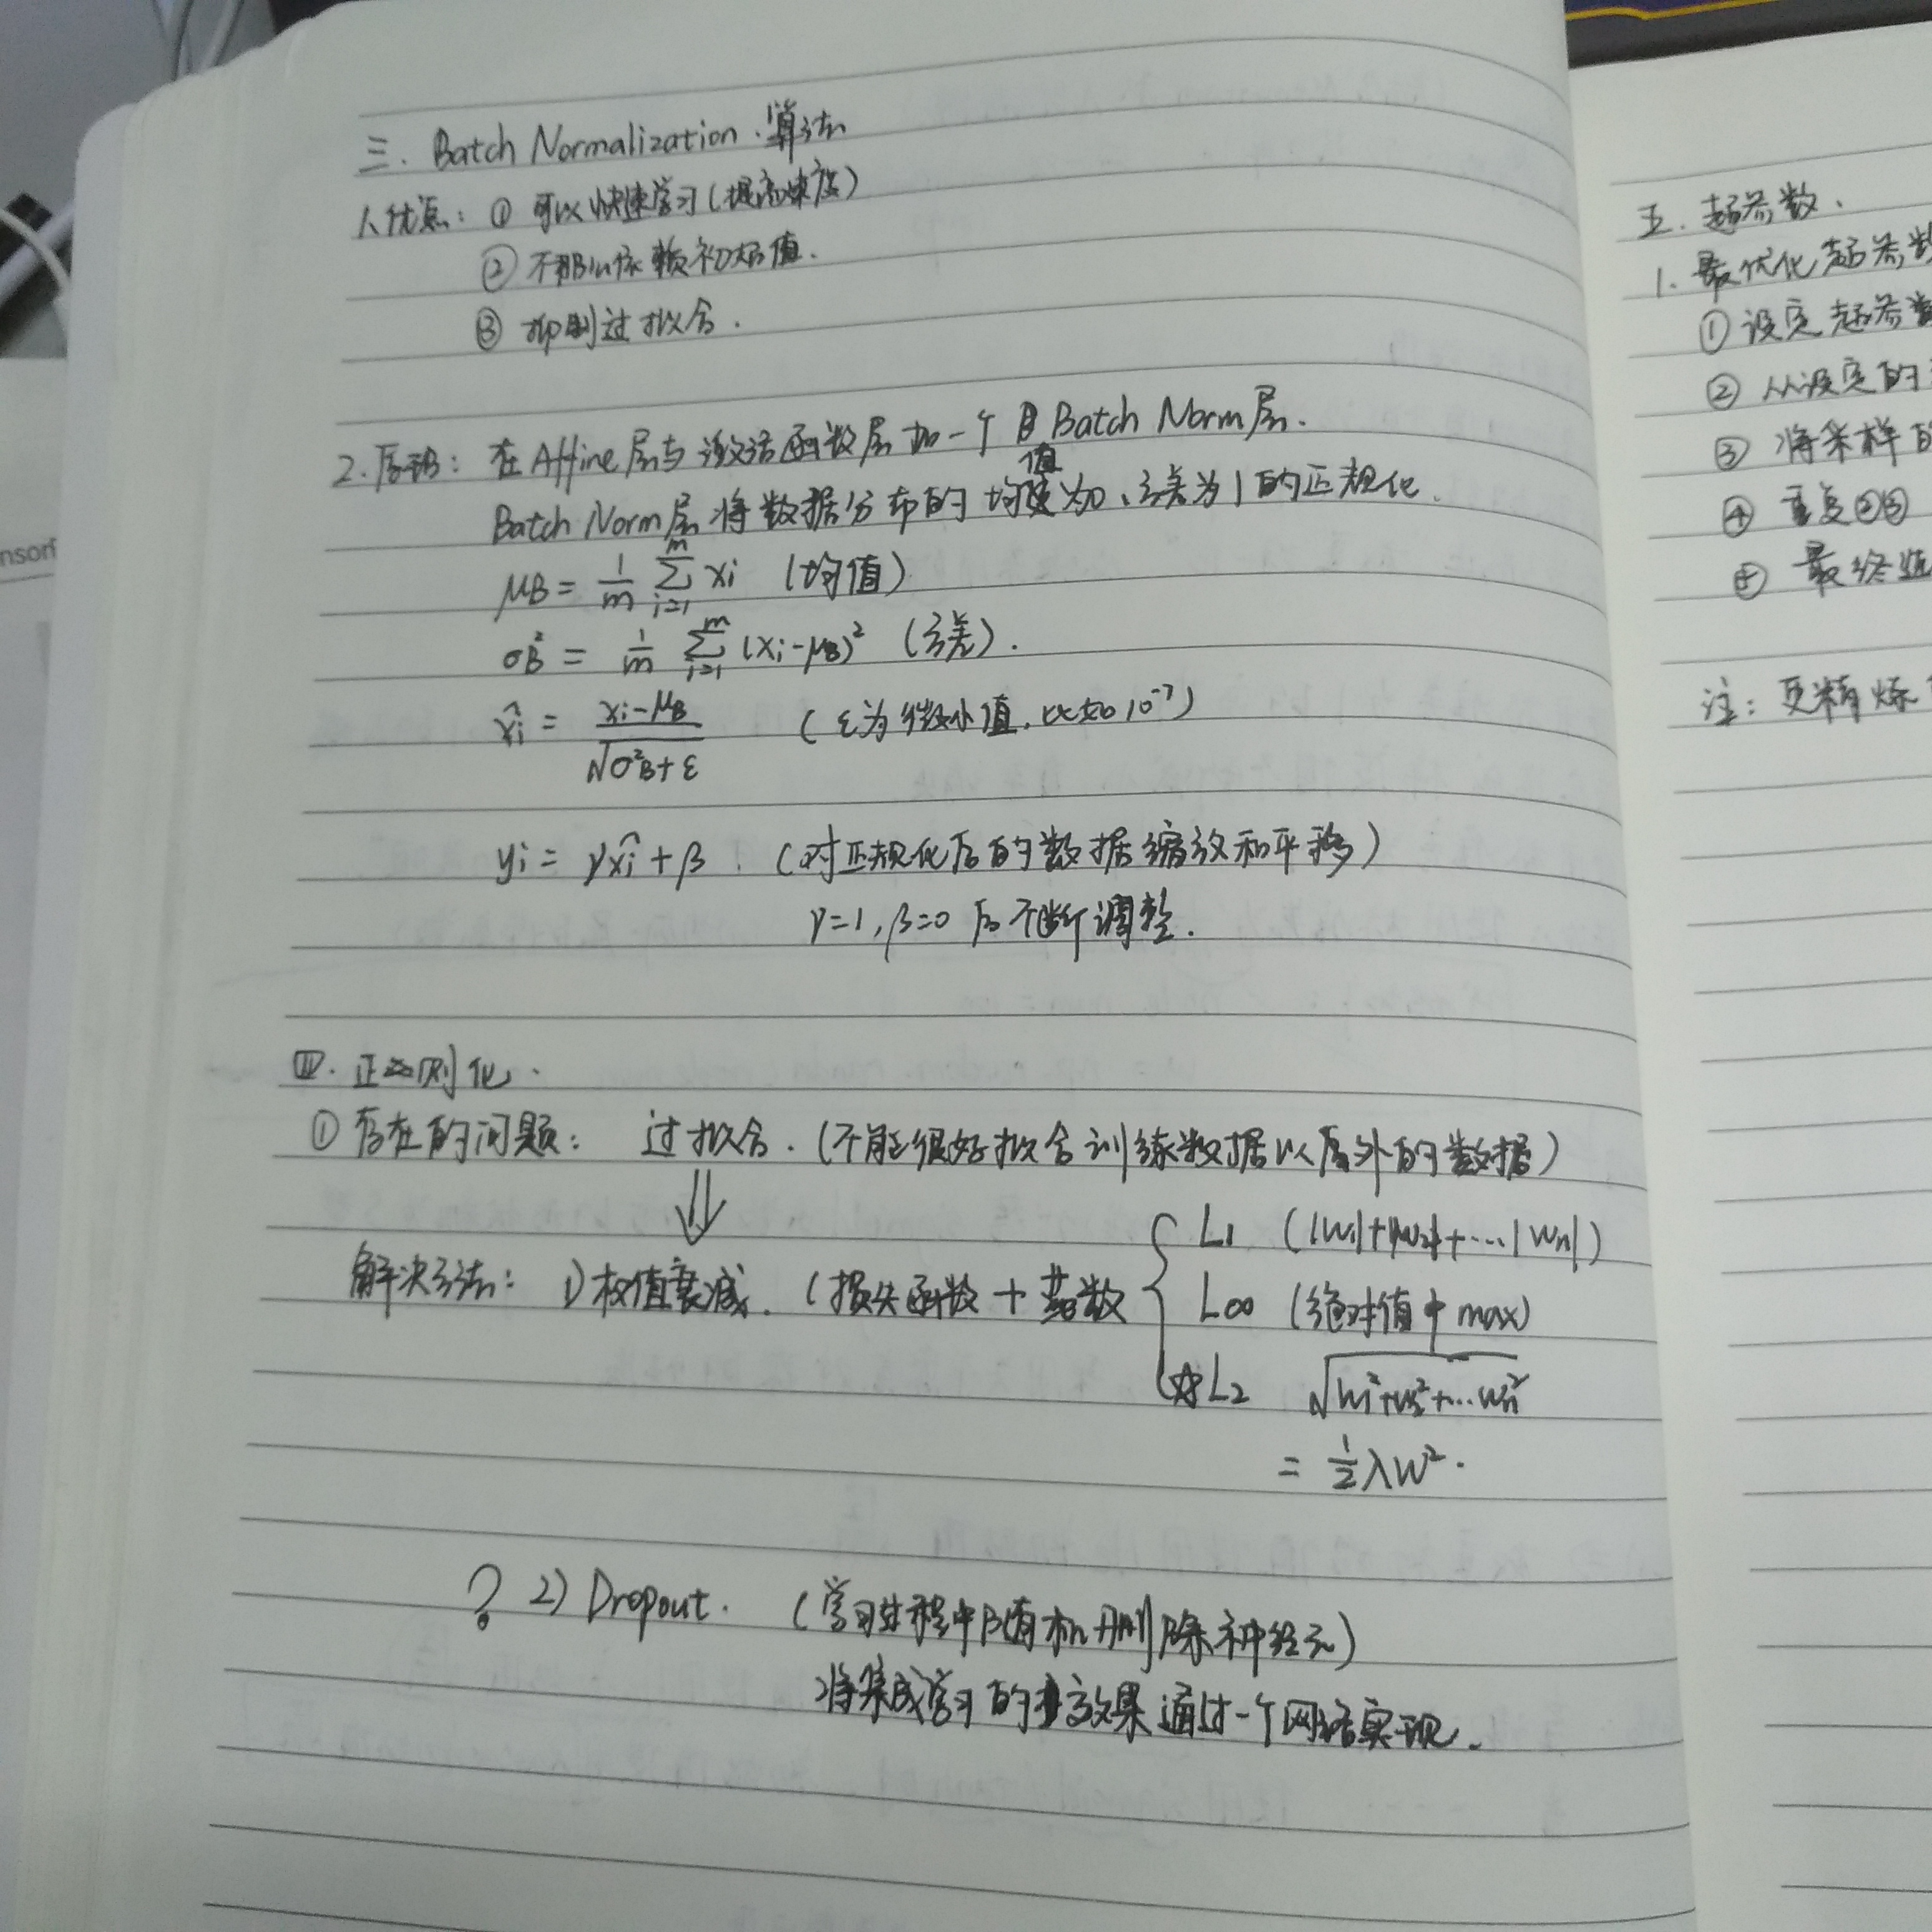 三. Batch Normalization 算法
1. 优点: ① 可以快速学习(提高速度)
② 不那么依赖初始值.
③ 抑制过拟合.
2. 原理: 在Affine层与激活函数层加一个 Batch Norm层.
Batch Norm层将数据分布的均值为0、方差为1的正规化.
μB = 1/m ∑_{i=1}^{m} xi (均值)
σB² = 1/m ∑_{i=1}^{m} (xi-μB)² (方差).
x̂i = (xi-μB)/√(σ²B+ε) (ε为微小值, 比如10⁻⁷)
yi = γx̂i + β. (对正规化后的数据缩放和平移)
γ=1, β=0 后不断调整.
四. 正则化.
① 存在的问题: 过拟合. (不能很好拟合训练数据以外的数据)
⇓
解决方法: 1) 权值衰减. (损失函数 + 范数 { L1 (|w1|+|w2|+...|wn|)
L∞ (绝对值中max)
☆L2 √(w1²+w2²+...wn²)
= ½λw².
? 2) Dropout. (学习过程中随机删除神经元)
将集成学习的效果通过一个网络实现.
五. 超参数.
1. 最优化超参数
① 设定超参数
② 从设定的
③ 将采样的
④ 重复②③
⑤ 最终
注: 更精炼
nsorf